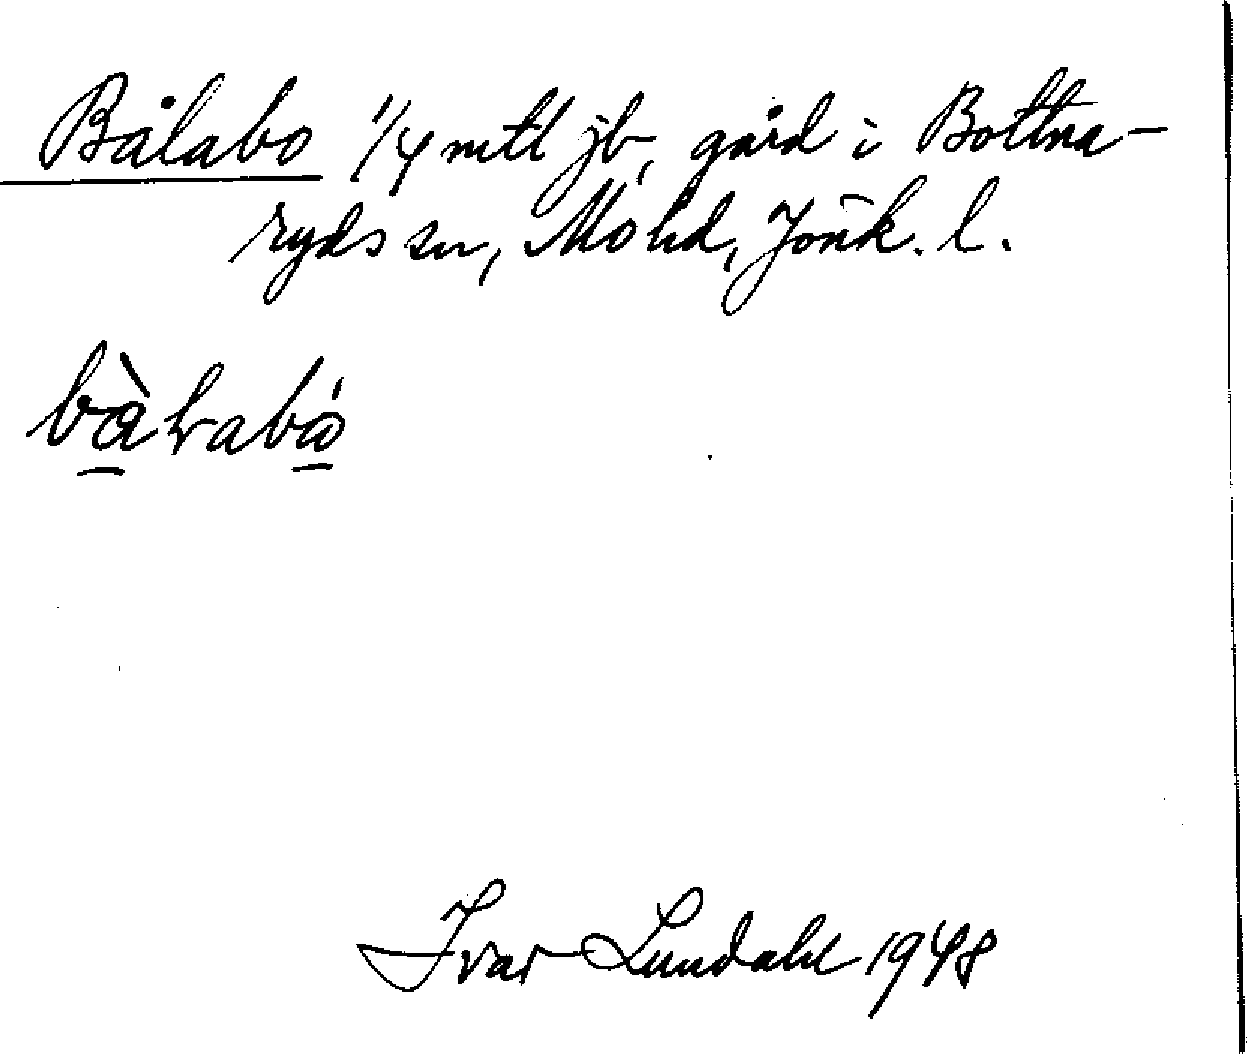 Bålabo 1/4 mtl jb, gård i Bottna-
ryds sn, Mo hd, Jönk. l.
Ivar Lundahl 1948